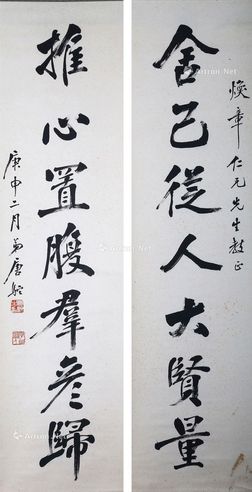 煥章仁兄先生教正
舍己從人大賢量
推心置腹羣彥歸
庚申二月弟唐駝
Artron.Net